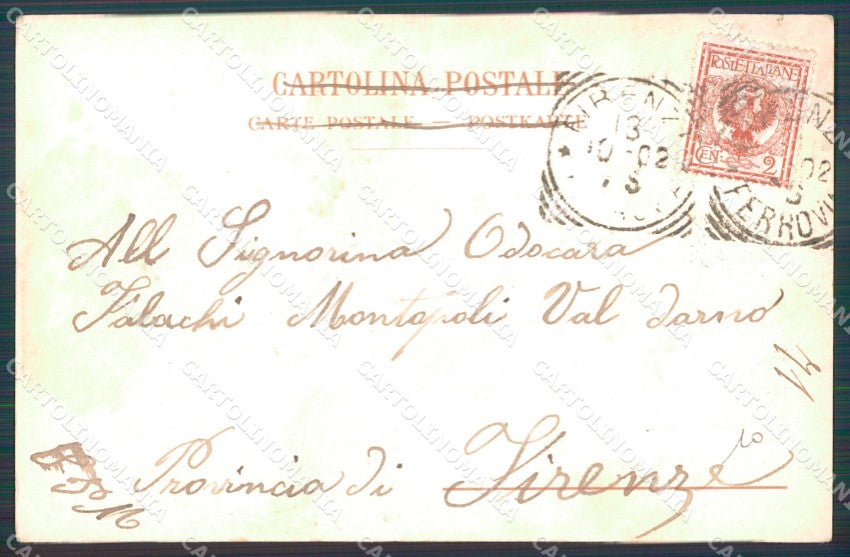 CARTOLINA POSTALE
CARTE POSTALE — POSTKARTE
POSTE ITALIANE
CEN. 2
FIRENZE
13
10-02
FERROVIA
All Signorina Odocara
Falachi Montopoli Val darno
14
Provincia di Firenze
CARTOLINOMANIA